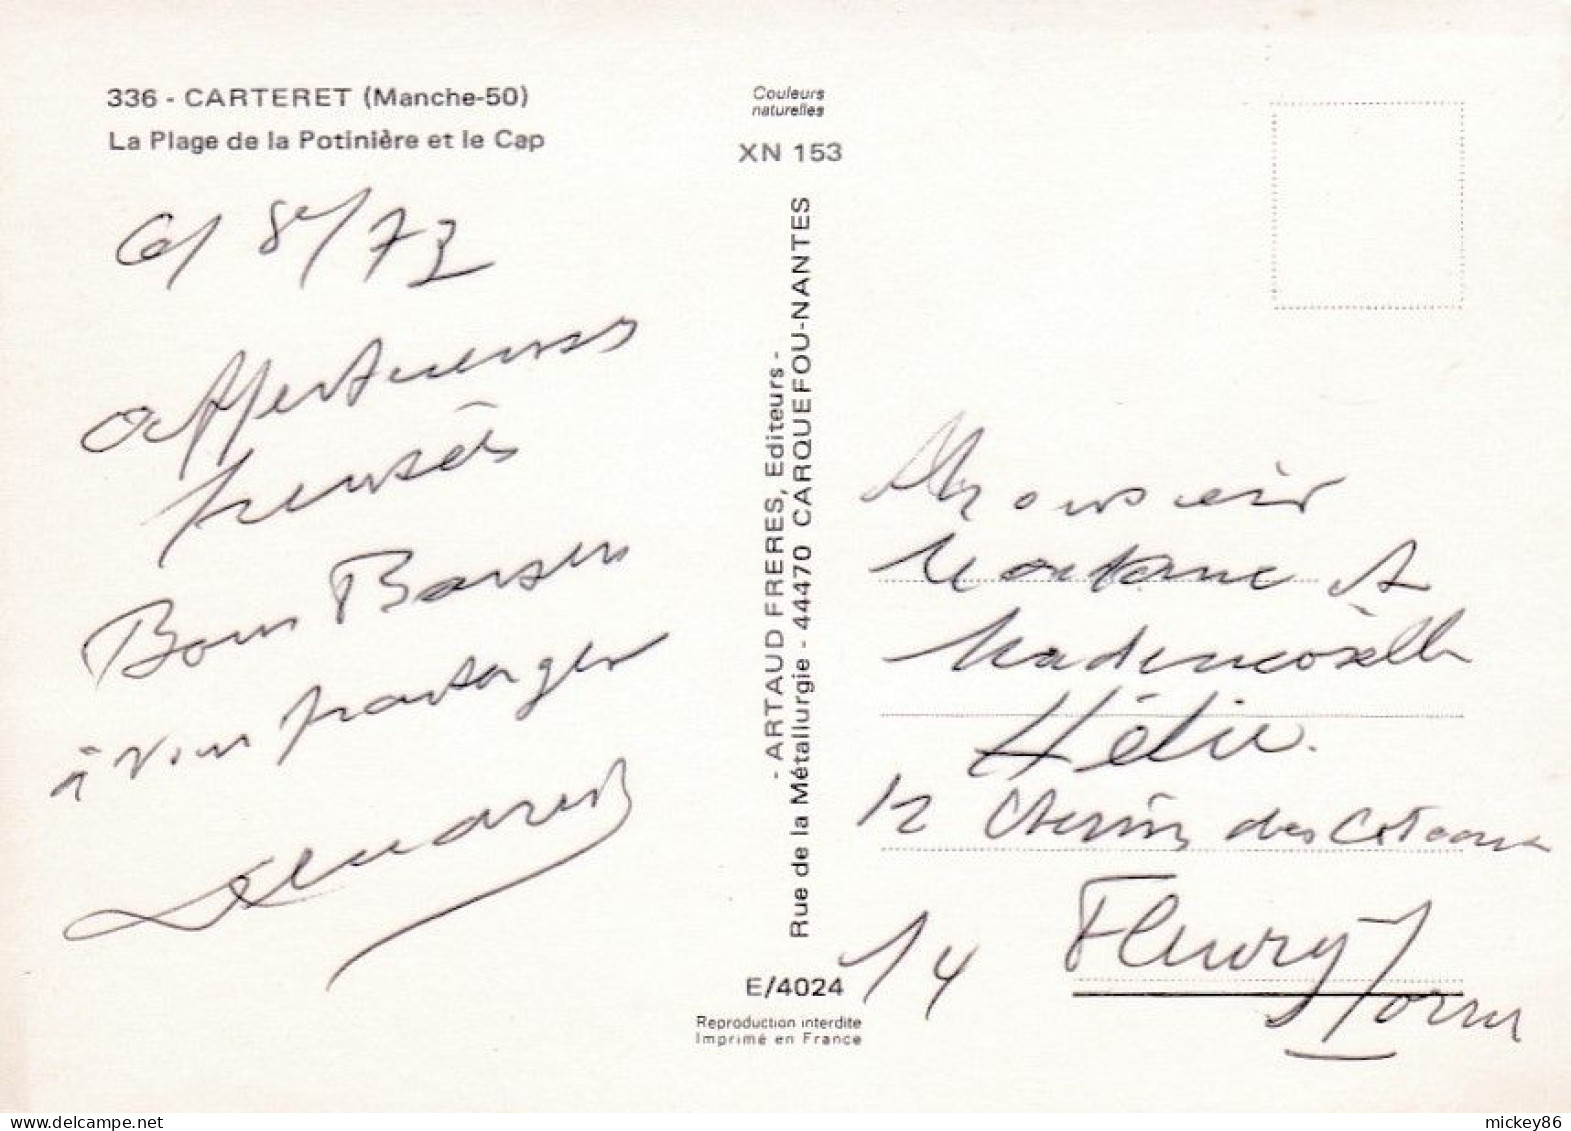 336 - CARTERET (Manche-50)
La Plage de la Potinière et le Cap
Couleurs
naturelles
XN 153
Ce/ 8e/73
Affectueuses
pensées
Bons Baisers
à vous partager
- ARTAUD FRERES, Editeurs -
Rue de la Métallurgie - 44470 CARQUEFOU-NANTES
E/4024
Reproduction interdite
Imprimé en France
Monsieur
Madame et
Mademoiselle
Hélie.
12 Chemin des Coteaux
14 Fleury s/ Orne
mickey86